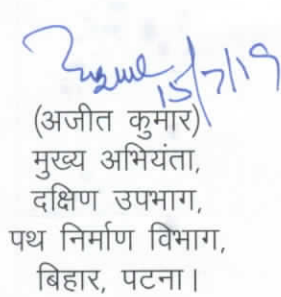 15/7/19
(अजीत कुमार)
मुख्य अभियंता,
दक्षिण उपभाग,
पथ निर्माण विभाग,
बिहार, पटना।